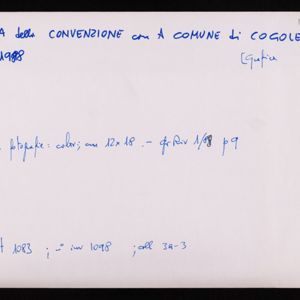 A della CONVENZIONE con A COMUNE di COGOLE
1998
[Grafica
fotografie: colori; cm 12x18. - 1/98 p 9
1083 ; -° inv 1098 ; coll 3A-3